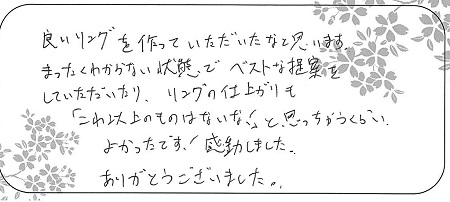 良いリングを作っていただいたなと思います。
まったくわからない状態でベストな提案を
していただいたり、リングの仕上がりも
「これ以上のものはないな!」と思っちゃうくらい
よかったです!感動しました。
ありがとうございました。